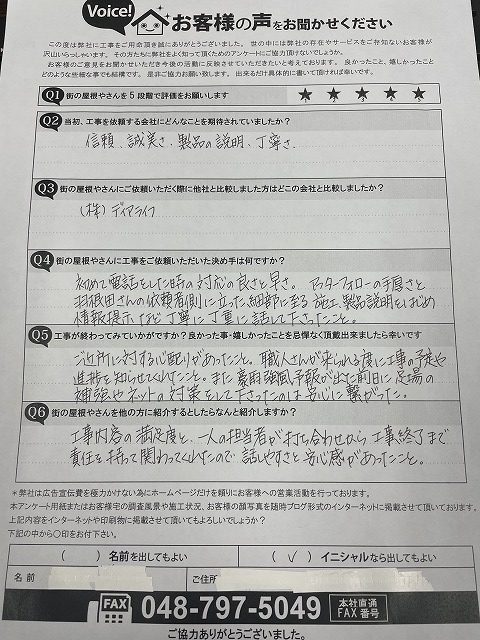 Voice!
お客様の声をお聞かせください
この度は弊社に工事をご用命頂き誠にありがとうございました。世の中には弊社の存在やサービスをご存知ないお客様が
沢山いらっしゃいます。その方たちに弊社をよく知って頂くためのアンケートにご協力頂けないでしょうか?
お客様のご意見をお聞かせいただき今後の活動に反映させていただきたいと考えております。良かったこと、嬉しかったこと
どのような些細な事でも結構です。是非ご協力お願い致します。出来るだけ具体的に書いて頂ければ幸いです。
Q1 街の屋根やさんを5段階で評価をお願いします ★ ★ ★ ★ ★
Q2 当初、工事を依頼する会社にどんなことを期待されていましたか?
信頼、誠実さ、製品の説明、丁寧さ
Q3 街の屋根やさんにご依頼いただく際に他社と比較しました方はどこの会社と比較しましたか?
(株)ディアライフ
Q4 街の屋根やさんに工事をご依頼いただいた決め手は何ですか?
初めて電話をした時の対応の良さと早さ。アフターフォローの手厚さと
羽根田さんの依頼者側に立った細部に至る施工、製品説明をはじめ
情報提示など丁寧に丁寧に話して下さったこと。
Q5 工事が終わってみていかがですか?良かった事・嬉しかったことを忌憚なく頂戴出来ましたら幸いです
ご近所に対する心配りがあったこと。職人さんが来られる度に工事の予定や
進捗を知らせてくれたこと。また豪雨強風予報が出た前日に足場の
補強やネットの対策をして下さったのは安心に繋がった。
Q6 街の屋根やさんを他の方に紹介するとしたらなんと紹介しますか?
工事内容の満足度と、一人の担当者が打ち合わせから工事終了まで
責任を持って関わってくれたので話しやすさと安心感があったこと。
＊弊社は広告宣伝費を極力かけない為にホームページだけを頼りにお客様への営業活動を行っております。
本アンケート用紙またはお客様宅の調査風景や施工状況、お客様の顔写真を随時ブログ形式のインターネットに掲載させて頂いております。
上記内容をインターネットや印刷物に掲載させて頂いてもよろしいでしょうか?
下記の中から〇印をお付下さい。
( ) 名前を出してもよい ( ✓ ) イニシャルなら出してもよい
名前 ご住所
FAX 048-797-5049 本社直通FAX番号
ご協力ありがとうございました。